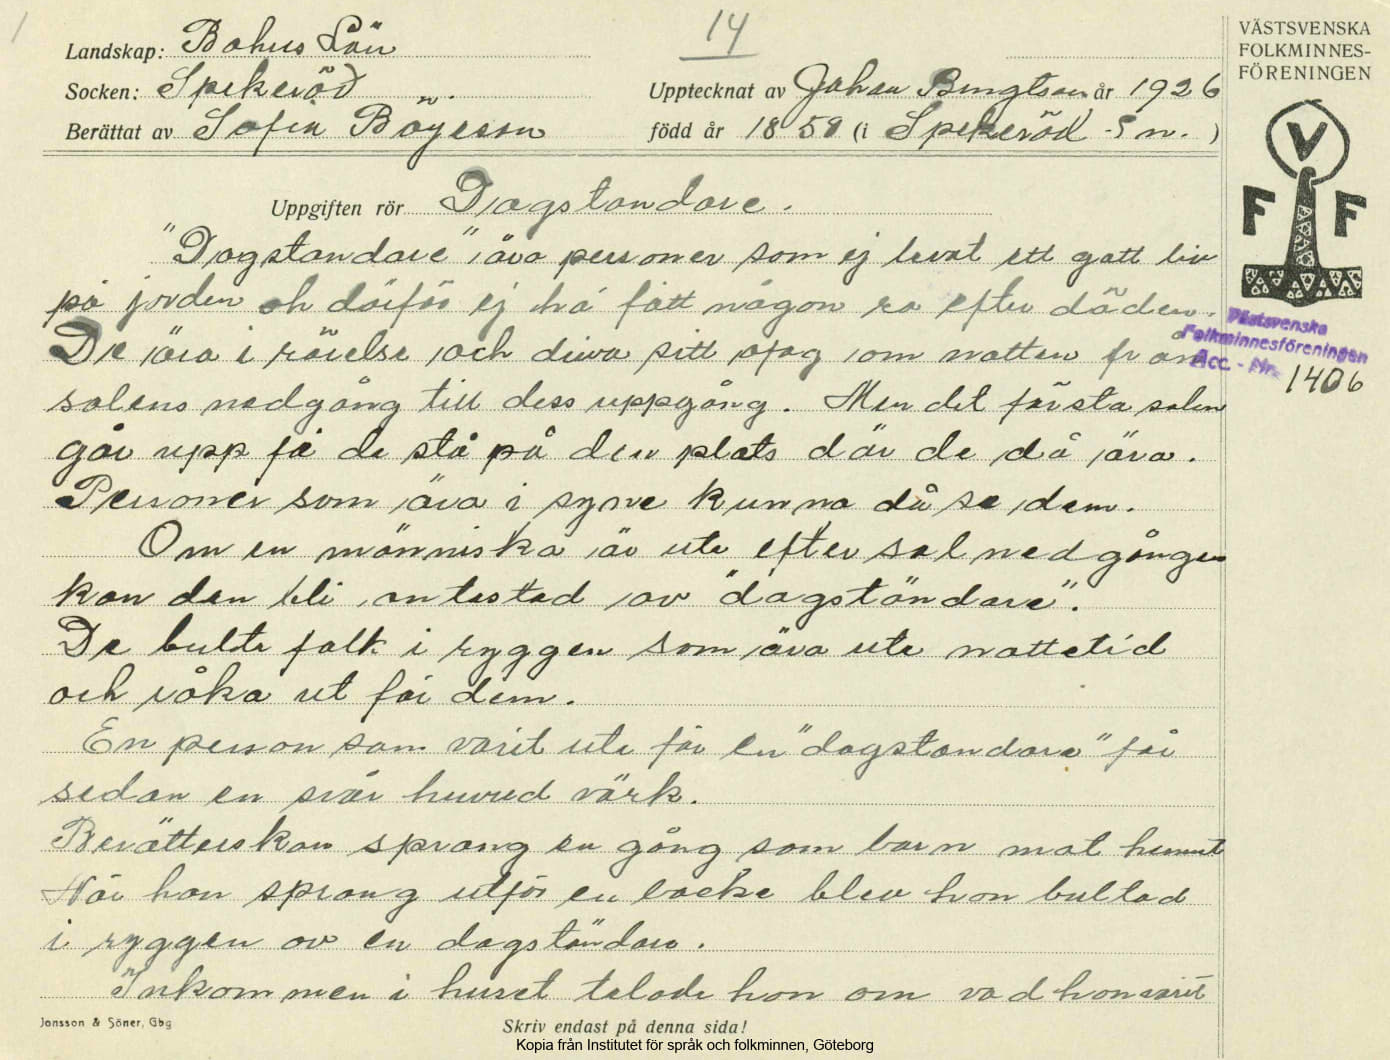 1
14
Landskap: Bohus Län
Socken: Spekeröd
Upptecknat av Johan Bengtson år 1926
Berättat av Sofia Börjesson
född år 1859 (i Spekeröd Sn. )
VÄSTSVENSKA
FOLKMINNES-
FÖRENINGEN
V
F F
Västsvenska
Folkminnesföreningen
Acc. - Nr. 1406
Uppgiften rör Dagståndare.
"Dagståndare" äro personer som ej levat ett gott liv
på jorden och därför ej há fått någon ro efter döden.
De äro i rörelse och driva sitt ofog om natten från
solens nedgång till dess uppgång. Men det första solen
går upp få de stå på den plats där de då äro.
Personer som äro i syne kunna då se dem.
Om en människa är ute efter sol nedgången
kan den bli antastad av "dagståndare".
De bulta folk i ryggen som äro ute nattetid
och råka ut för dem.
En person som varit ute för en "dagståndare" får
sedan en svår huvud värk.
Berätterskan sprang en gång som barn mot hemmet
När hon sprang utför en backe blev hon bultad
i ryggen av en dagståndare.
Inkommen i huset talade hon om vad hon varit
Jonsson & Söner, Gbg
Skriv endast på denna sida!
Kopia från Institutet för språk och folkminnen, Göteborg